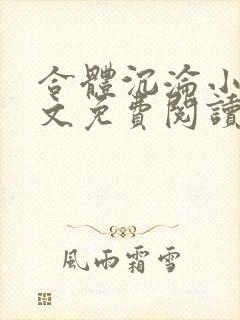 合體沉淪小
文免費閱讀
風雨霜雪